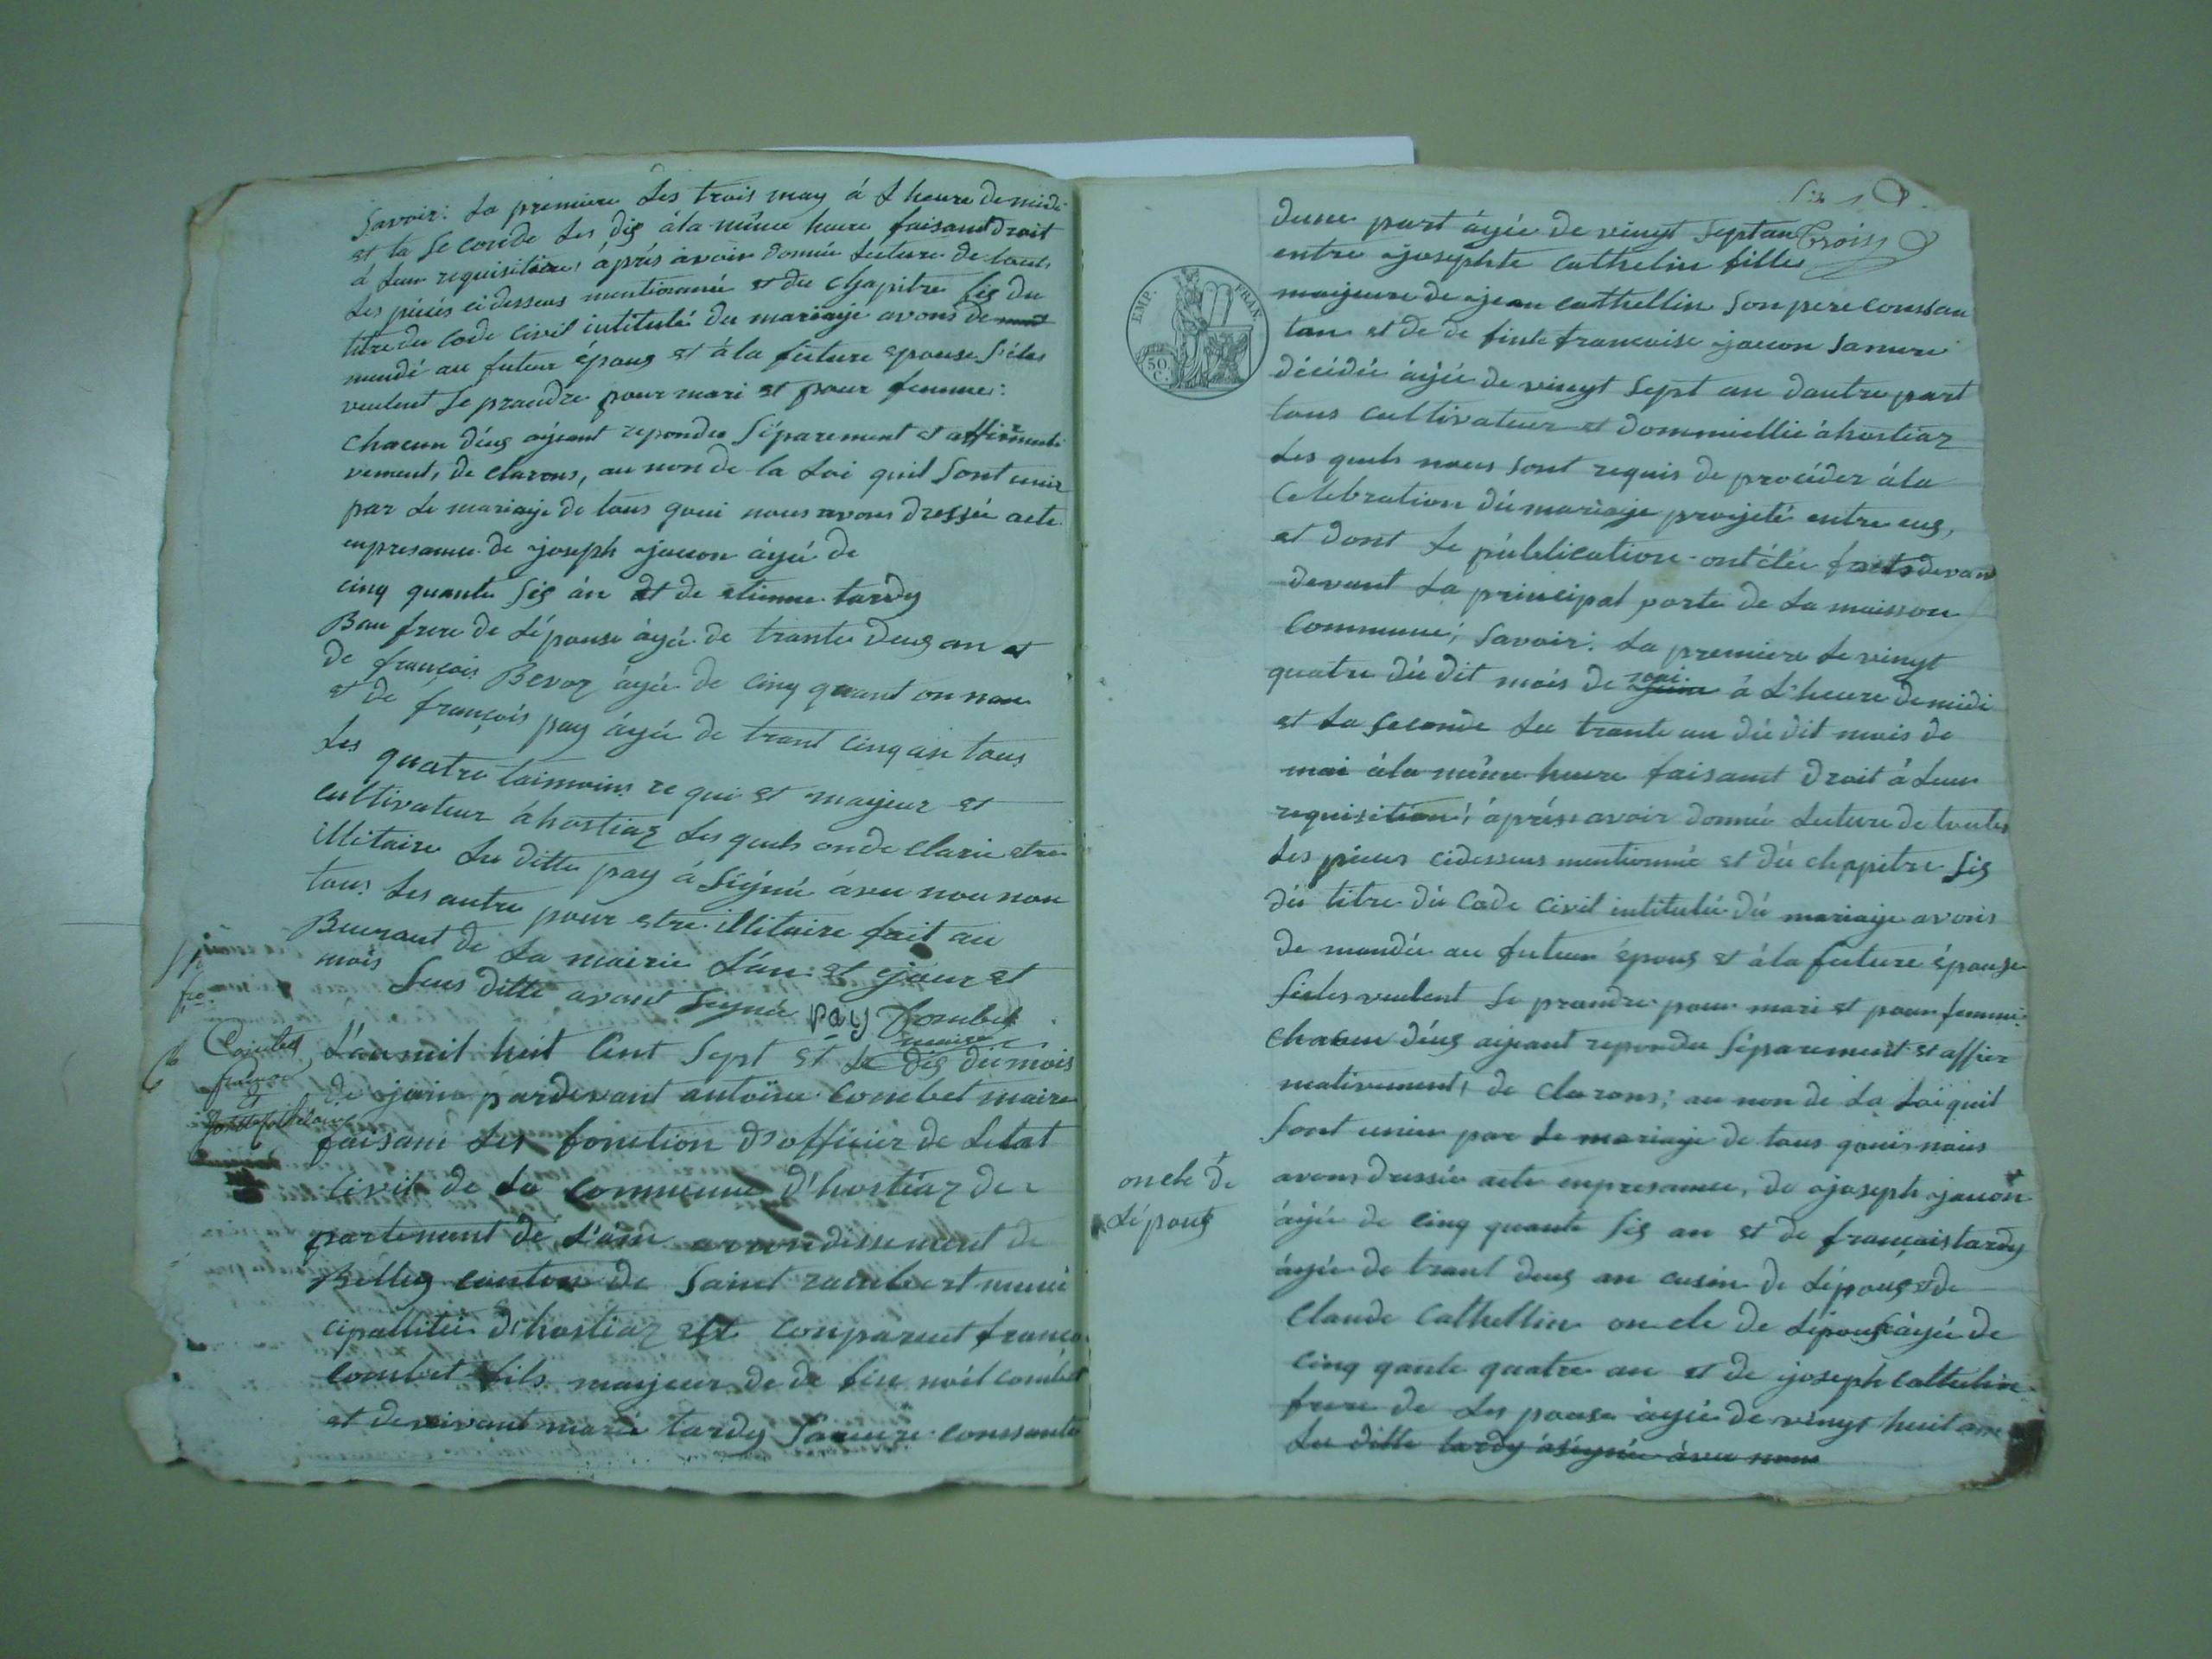 Savoir: La premiere Les trois may á L heure de midi
et la Seconde Les dix á la même heure faisant droit
á Leur requisition, áprés ávoir donnée Lecture de tout
Les piéces cidessus mentionnée et du chapitre six du
titre du Code Civil intitulé du mariage avons de
mendé au futeur époux et á la future epouse S'éles
veulent Se prandre pour mari et pour femme:
Chacun d'éux ajeant repondu Séparement et affirmati
vement, de clarons, au non de la Loi quil Sont unir
par Le mariage de tous quoi nous avons dressée acte
enpresance de joseph jacon ágé de
cinq quante six án et de etienne tardy
Bau frere de Lépouse ágé de trante deux an et
de françois Bevoz ágé de cinq quant on nan
et de françois pay ágé de trant cinq an tous
Les quatre taimoins re qui et majeur et
cultivateur á hostiaz Les quels on de clarie etre
illitaire Le ditte pay á Signé ávec nou non
tous Les autre pour etre illitaire fait au
Bueraut de La mairie L'an et jour et
mois Sus ditte avont Signée pay Combet
maire
Combet
francoi
et
L'an mil huit Cent Sept et Le dix du mois
de juin pardevant antoine Combet maire
faisant Les fonction D'officier de Letat
Civil de La Commune d'hostiaz de
partement de L'ain arrondissement de
Belley canton de Saint rambert muni
cipallitée d'hostiaz est Conparuet franco
Combet fils majeur de de feu noël combet
et de vivant marie tardy Sa mere consante
Six
dune part ágée de vingt Sept an Trois
entre josephte cathelin fille
majeure de jean cathellin Son pere conssan
tan et de de finte francoise jacon Samere
décédée ágée de vingt Sept an dautre part
tous cultivateur et dommiellié á hostiaz
Les quels nous Sont requis de procéder á la
Celebration du mariage projeté entre eux,
et dont Le publication ont étée faite devan
devant La principal porte de La maisson
Commune; Savoir: La premiere Le vingt
quatre du dit mois de juin mai á L'heure de midi
et La Seconde Le trante un du dit mois de
mai á la même heure faisant droit á Leur
requisition; áprés avoir donnée Lecture de toutes
Les piéces cidessus mentionnée et du cheppitre six
du titre du Code Civil intitulée du mariage avons
de mandée au futeur époux et á la future épouse
Siéles veulent Se prandre pour mari et pour femme.
Chacun d'éux ajeant repondu Séparement et affier
mativement, de Clarons; au non de La Loi quil
Sont unir par Le mariage de tous quoi nous
avons dressée acte enpresance, de joseph jacon
oncle de
Lépoux
ágée de cinq quante six an et de françois tardy
ágée de trant deux an cusin de Lépoux et de
Claude Cathellin on cle de Lépouse ágée de
cinq qante quatre an et de joseph Cathelin
frere de Les pouse ágée de vingt huit an
Le ditte tardy á signée ávec nous
EMP. FRAN.
50
C.